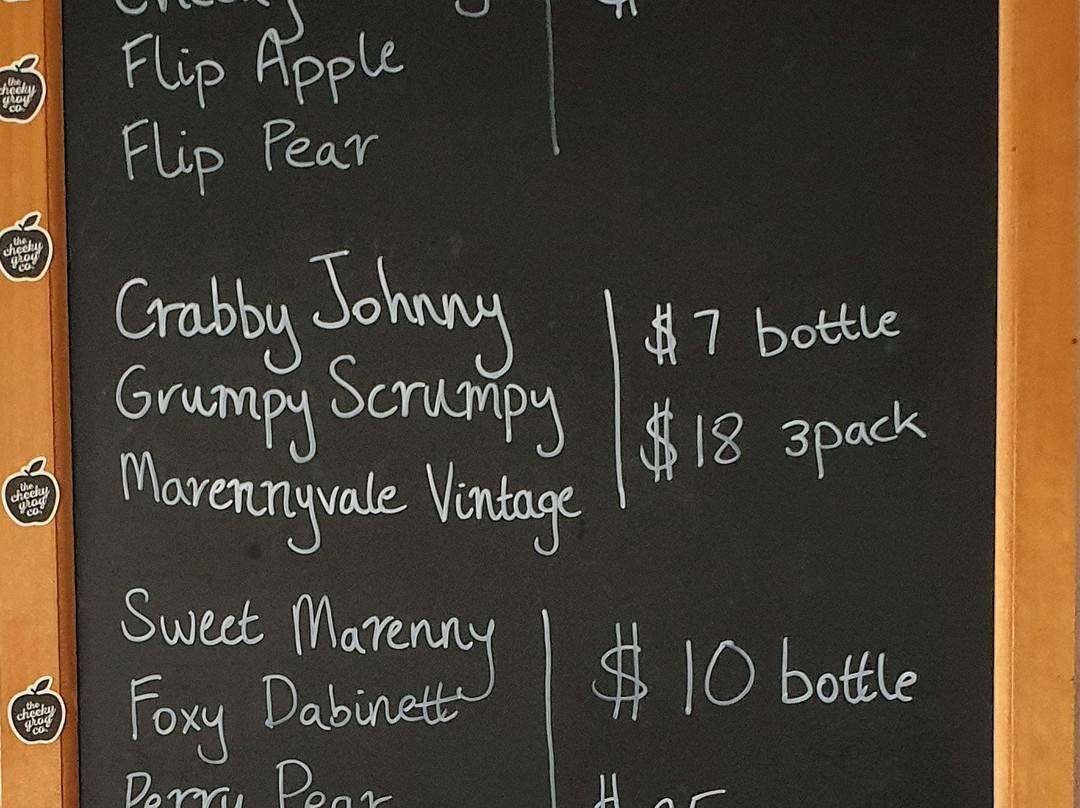 Flip Apple
Flip Pear
Crabby Johnny
Grumpy Scrumpy
Marennyvale Vintage
$7 bottle
$18 3pack
Sweet Marenny
Foxy Dabinett
Perry Pear
$10 bottle
the
cheeky
grog
co.
the
cheeky
grog
co.
the
cheeky
grog
co.
the
cheeky
grog
co.